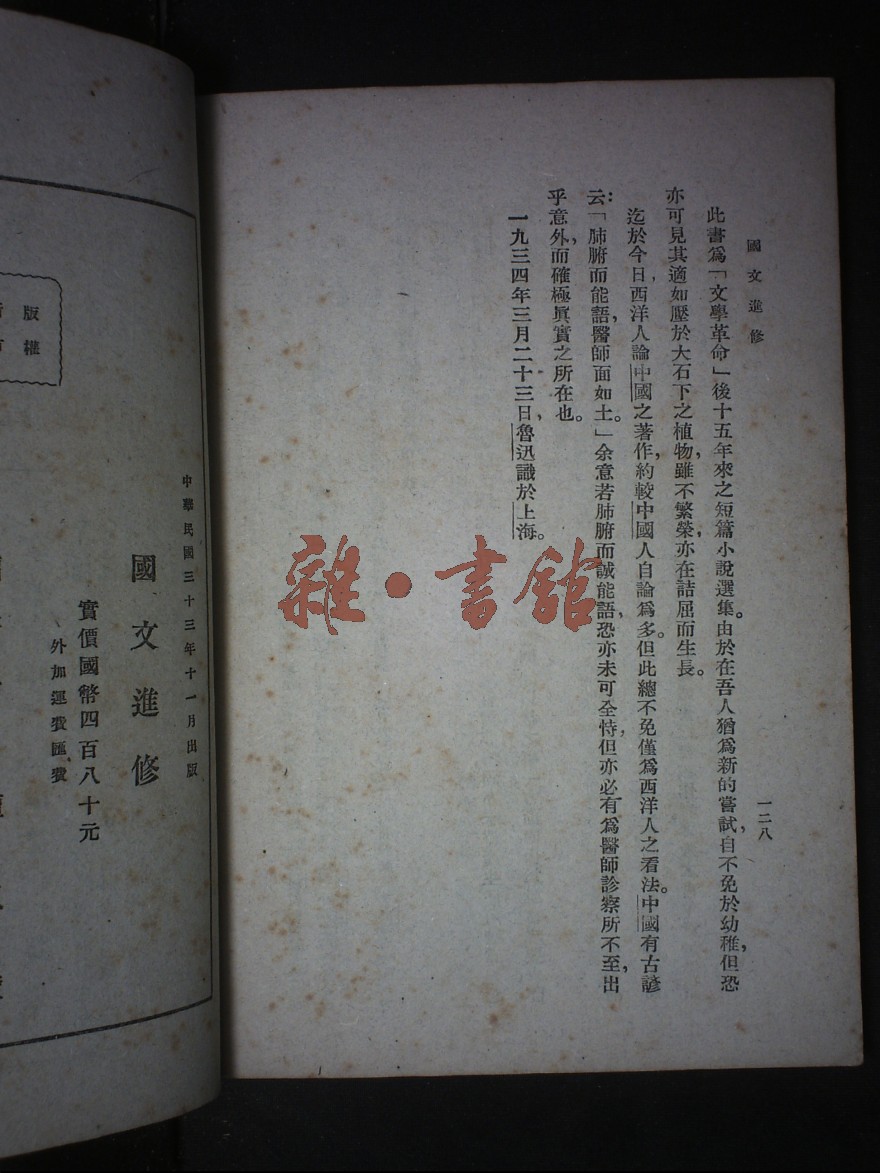 國文進修
一二八
此書爲「文學革命」後十五年來之短篇小說選集。由於在吾人猶爲新的嘗試，自不免於幼稚，但恐
亦可見其適如壓於大石下之植物，雖不繁榮，亦在詰屈而生長。
迄於今日，西洋人論中國之著作，約較中國人自論爲多。但此總不免僅爲西洋人之看法。中國有古諺
云：「肺腑而能語，醫師面如土。」余意若肺腑而誠能語，恐亦未可全恃，但亦必有爲醫師診察所不至，出
乎意外，而確極眞實之所在也。
一九三四年三月二十三日，魯迅識於上海。
雜·書館
中華民國三十三年十一月出版
國文進修
實價國幣四百八十元
外加運費匯費
版權